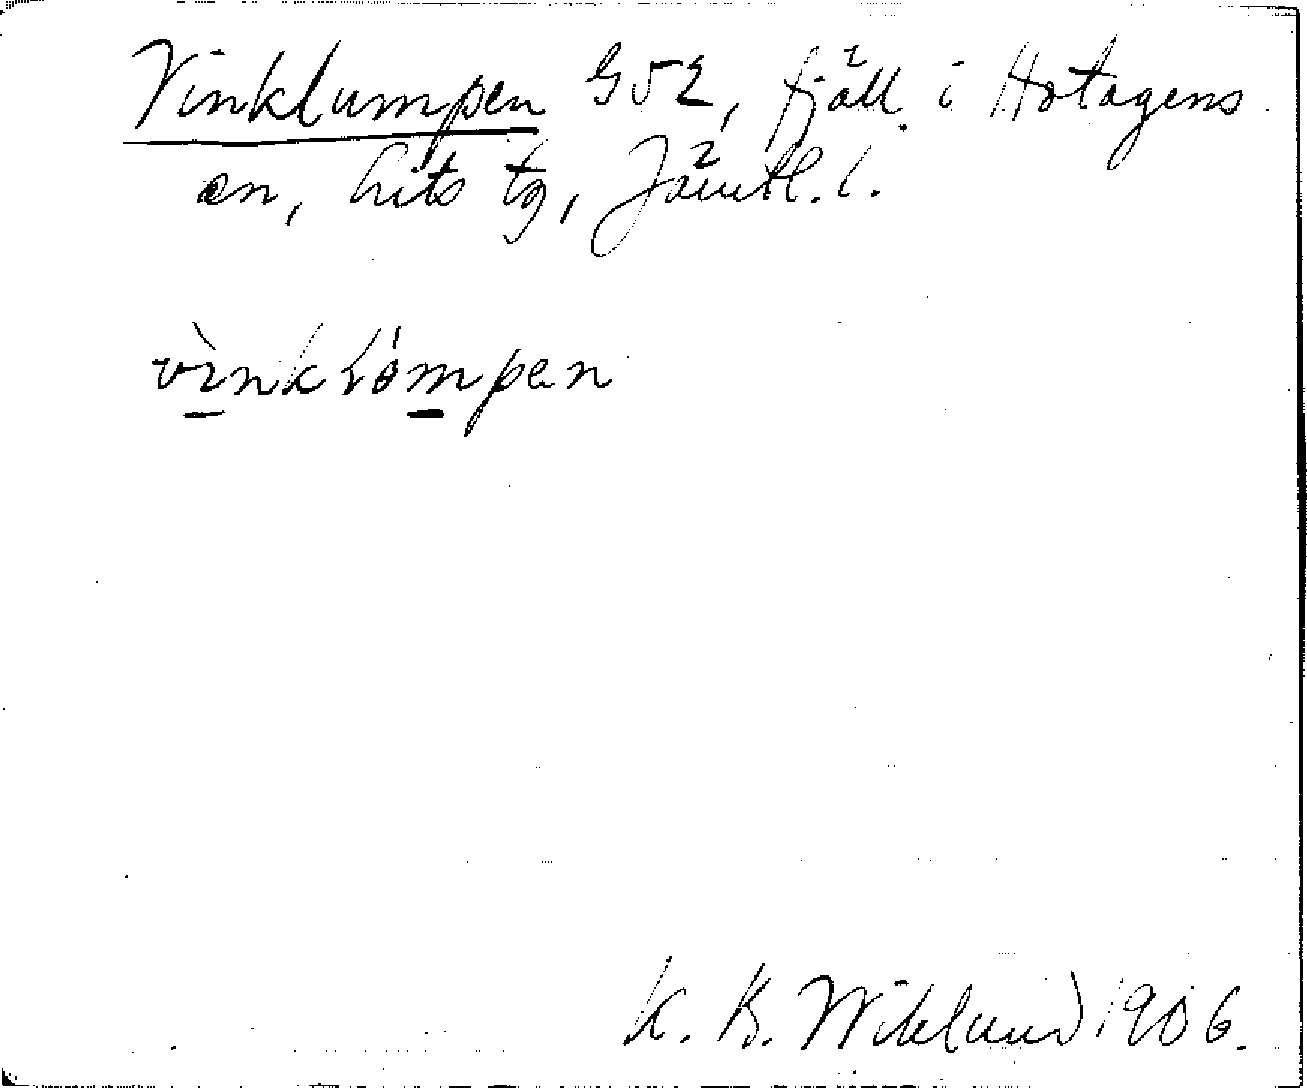 Vinklumpen G52, fjäll i Hotagens
sn, Lits tg, Jämtl. l.
vinklømpen
K. B. Wiklund 1906.